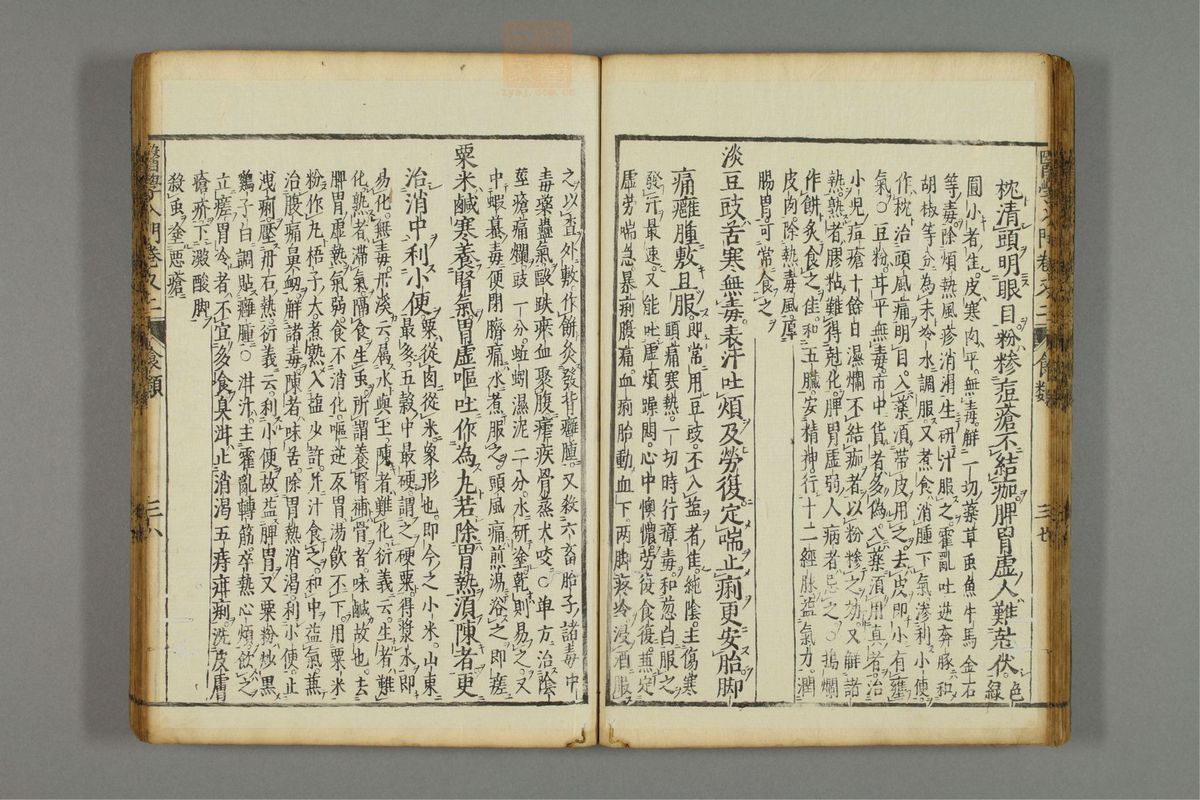 枕清頭明眼目粉糝痘瘡不結痂脾胃虛人難尅伏色綠
圓小者佳皮寒肉平無毒解一切藥草虫魚牛馬金石
等毒除煩熱風疹消渴生研汁服之霍亂吐逆奔豚和
胡椒等分為末冷水調服又煮食消腫下氣滲利小便
作枕治頭風痛明目入藥須帶皮用之去皮即小有壅
氣○豆粉甘平無毒市中貨者多偽入藥須用真者治
小兒痘瘡十餘日濕爛不結痂者以粉糝之妙又解諸
熱熟者膠粘難得尅化脾胃虛弱人病者忌之○搗爛
作餅炙食之佳和五臟安精神行十二經脉益氣力潤
皮肉除熱毒風厚
腸胃可常食之
淡豆豉苦寒無毒表汗吐煩及勞復定喘止痢更安胎脚
痛癰腫敷且服即常用豆豉不入盐者佳純陰主傷寒
頭痛寒熱一切時行瘴毒和葱白服之
發汗最速又能吐虛煩躁悶心中懊憹勞復食復兼定
虛勞喘急暴痢腹痛血痢胎動血下兩脚疼冷浸酒服
醫學入門卷之二 食類 三七
之以渣外敷作餅灸發背癰腫又殺六畜胎子諸毒中
毒藥蠱氣毆跌瘀血聚腹瘧疾骨蒸犬咬○单方治陰
莖瘡痛爛豉一分蚯蚓濕泥二分水研塗乾則易之又
中蝦蟇毒便閉臍痛水煮服之頭風痛煎湯浴之即瘥
粟米鹹寒養腎氣胃虛嘔吐作為丸若除胃熱須陳者更
治消中利小便粟從卤從米象形也即今之小米山東
最多五穀中最硬謂之硬粟得漿水即
易化無毒丹溪云屬水與土陳者難化衍義云生者難
化熟者滞氣隔食生虫所謂養腎補骨者味鹹故也去
脾胃虛熱氣弱食不消化嘔逆反胃湯飲不下用粟米
粉作丸梧子大煮熟入塩少許并汁食之和中益氣兼
治腹痛鼻衂解諸毒陳者味苦除胃熱消渴利小便止
洩痢壓丹石熱衍義云利小便故益脾胃又粟粉炒黒
鷄子白調貼癰腫○泔汁主霍亂轉筋卒熱心煩飲之
立瘥胃冷者不宜多食臭泔止消渴五痔疳痢洗皮膚
瘡疥下澱酸脚
殺虫塗悪瘡
醫學入門卷之二 食類 三八